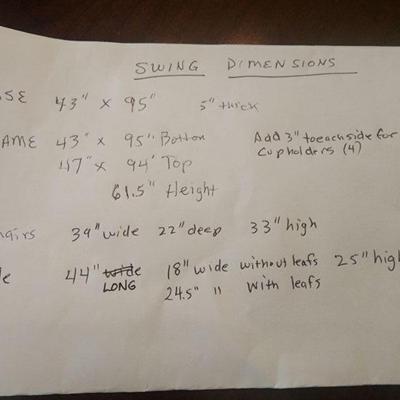 SWING DIMENSIONS
SE 43" x 95" 5" thick
AME 43" x 95" Bottom Add 3" to each side for
47" x 94" Top Cupholders (4)
61.5" Height
airs 39" wide 22" deep 33" high
le 44" wide 18" wide without leafs 25" high
LONG 24.5" " with leafs